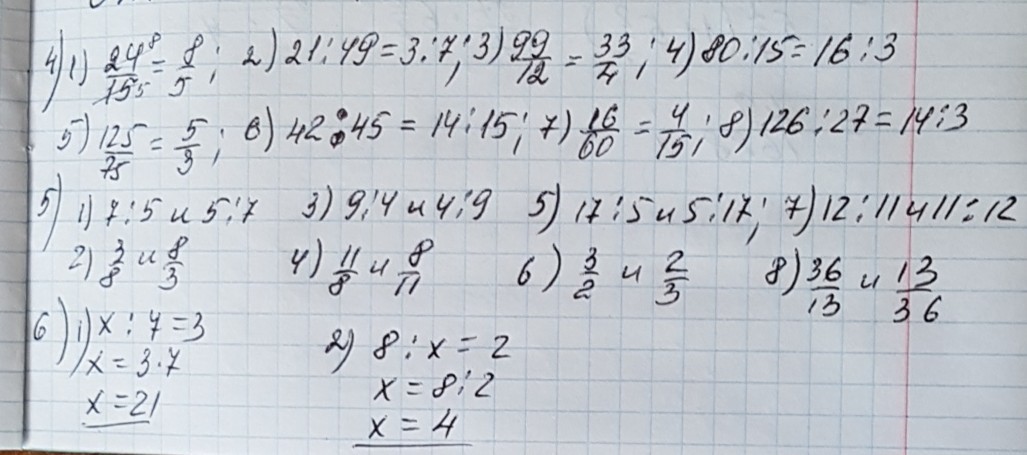 4) 1) 24⁸/15₅ = 8/5; 2) 21:49 = 3:7; 3) 99/12 = 33/4; 4) 80:15 = 16:3
5) 125/75 = 5/3; 6) 42:45 = 14:15; 7) 16/60 = 4/15; 8) 126:27 = 14:3
5) 1) 7:5 и 5:7 3) 9:4 и 4:9 5) 17:5 и 5:17; 7) 12:11 и 11:12
2) 3/8 и 8/3 4) 11/8 и 8/11 6) 3/2 и 2/3 8) 36/13 и 13/36
6) 1) x : 7 = 3
x = 3·7
x = 21
2) 8 : x = 2
x = 8:2
x = 4